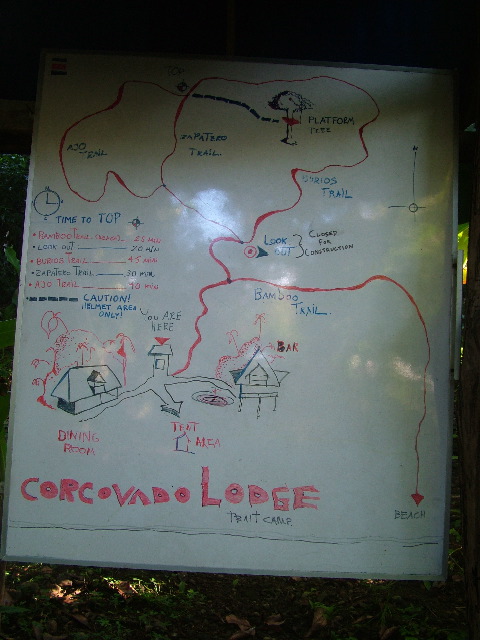 TOP
PLATFORM
TREE
ZAPATERO
TRAIL.
AJO
TRAIL
BURIOS
TRAIL
TIME TO TOP
LOOK
OUT
CLOSED
FOR
CONSTRUCTION
• BAMBOO TRAIL 25 MIN
• LOOK OUT 20 MIN
• BURIOS TRAIL 45 MIN
• ZAPATERO TRAIL 30 MIN
• AJO TRAIL 90 MIN
CAUTION!
HELMET AREA
ONLY!
BAMBOO
TRAIL.
YOU ARE
HERE
BAR
DINING
ROOM
TENT
AREA
CORCOVADO LODGE
TENT CAMP
BEACH